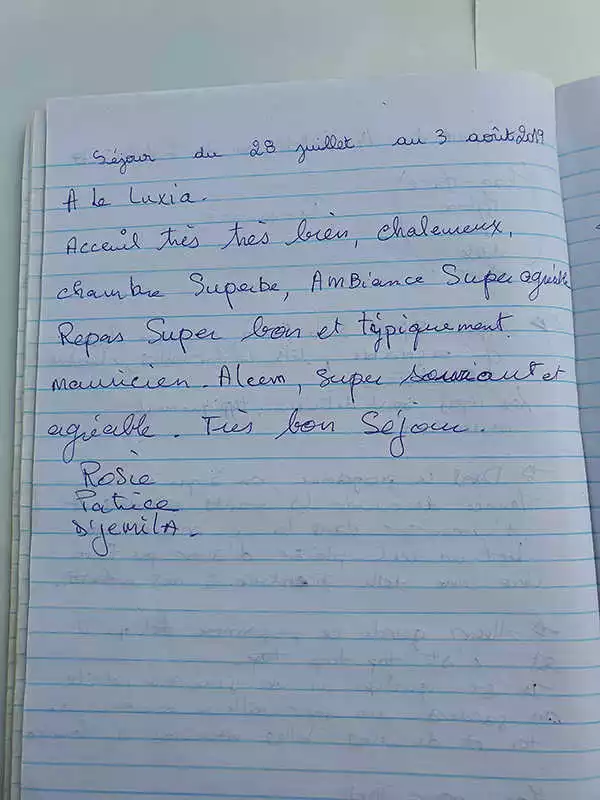 Séjour du 28 juillet au 3 août 2019
A Le Luxia.
Acceuil très très bien, chaleureux,
chambre Superbe, AmBiance Super agréable
Repas Super bon et typiquement
mauricien. Aleem, super souriant et
agréable. Très bon Séjour.
Rosie
Patrice
DjemilA.